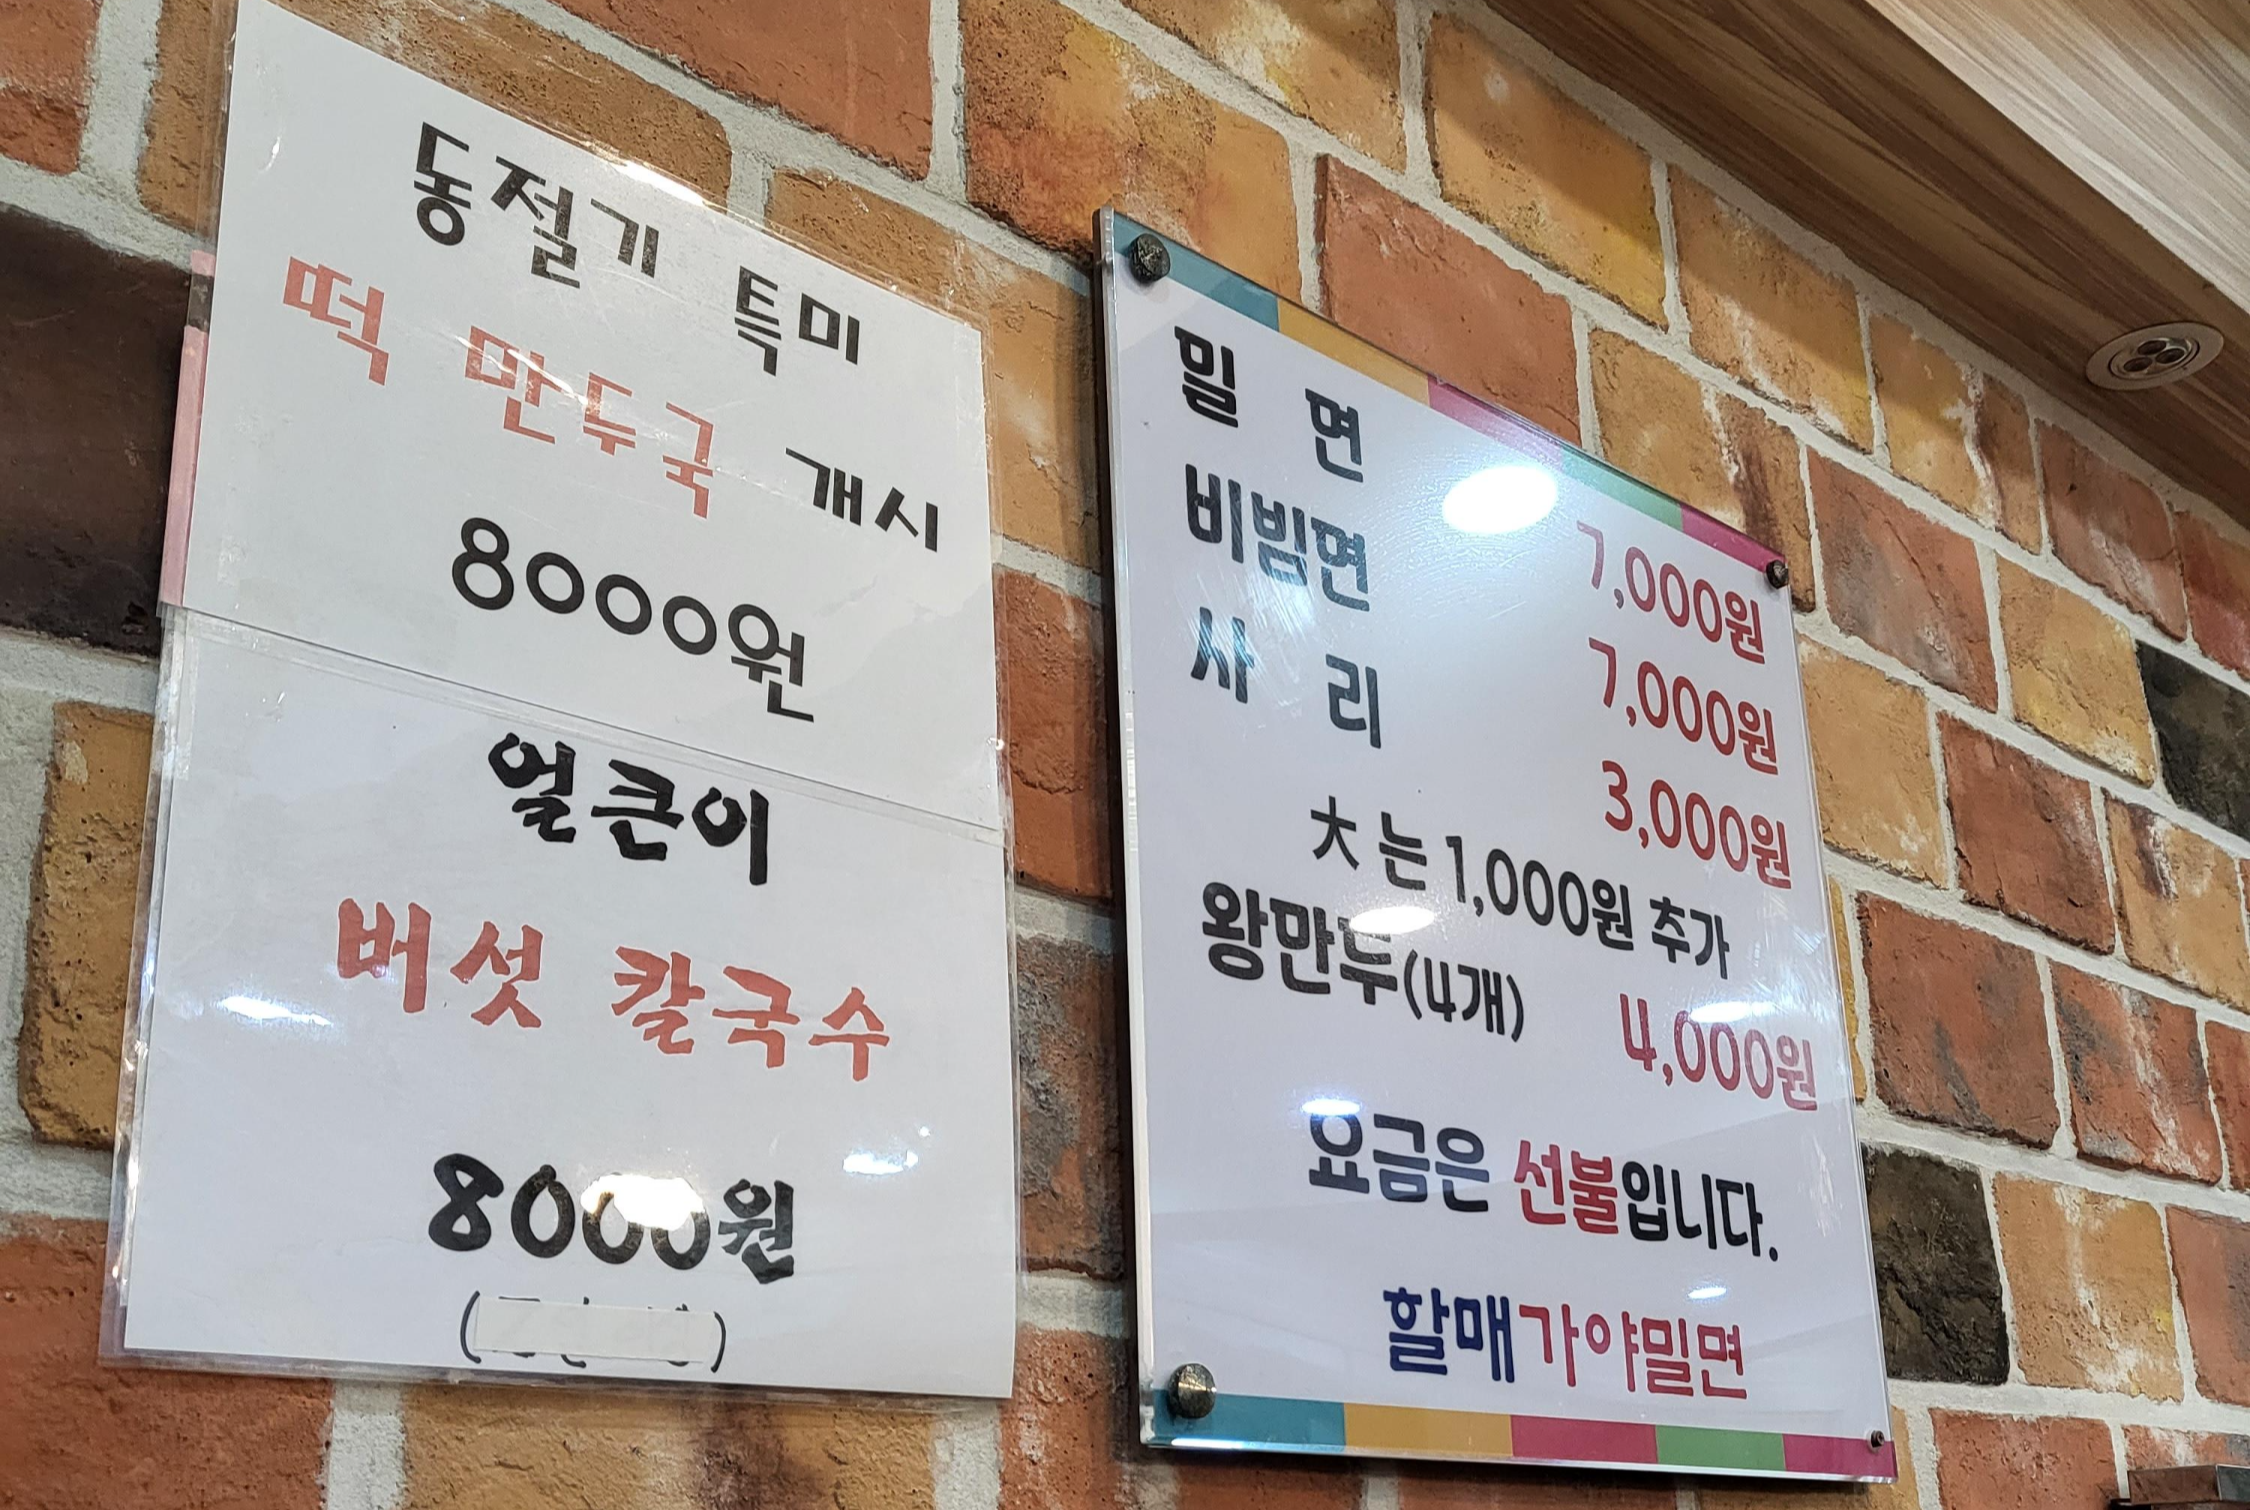 동절기 특미
떡 만두국 개시
8000원
얼큰이
버섯 칼국수
8000원
밀면 7,000원
비빔면 7,000원
사리 3,000원
大는 1,000원 추가
왕만두(4개) 4,000원
요금은 선불입니다.
할매가야밀면